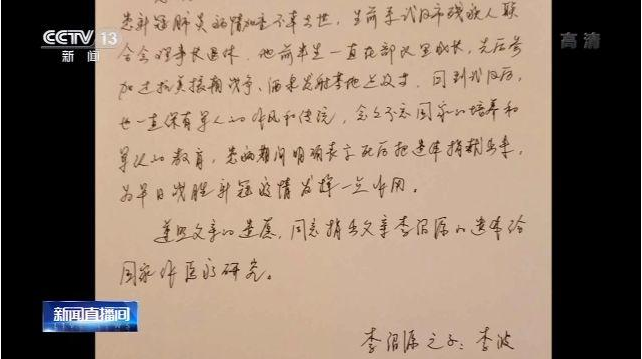 CCTV 13
新闻
高清
患新冠肺炎病情加重不幸去世，生前系武汉市残疾人联
合会理事长退休。他前半生一直在部队里成长，先后参
加过抗美援朝战争、酒泉发射基地建设。回到武汉后，
也一直保有军人的作风和传统，念念不忘国家的培养和
军队的教育，患病期间明确表示死后把遗体捐献出来，
为早日战胜新冠疫情发挥一点作用。
遵照父亲的遗愿，同意捐出父亲李绍源的遗体给
国家作医药研究。
李绍源之子：李波
新闻直播间